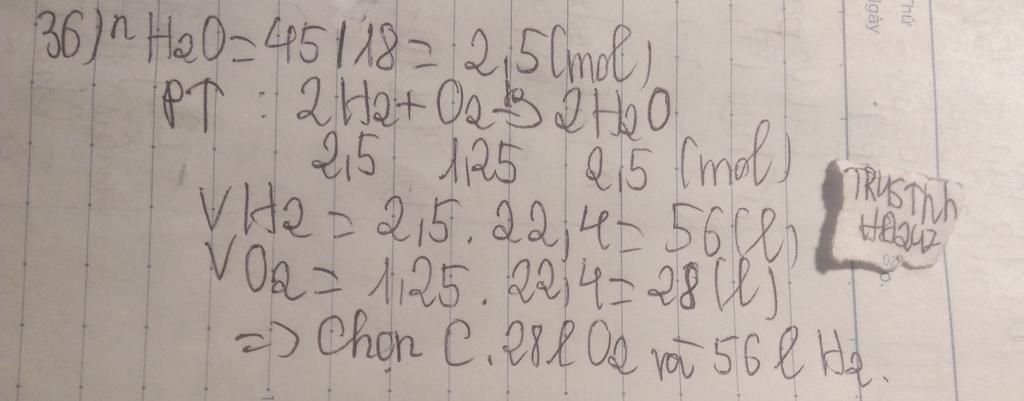 36) nH2O = 45/18 = 2,5 (mol)
PT : 2H2 + O2 → 2H2O
2,5 1,25 2,5 (mol)
VH2 = 2,5 . 22,4 = 56 (l)
VO2 = 1,25 . 22,4 = 28 (l)
=> Chọn C. 28l O2 và 56 l H2.
Thứ
Ngày